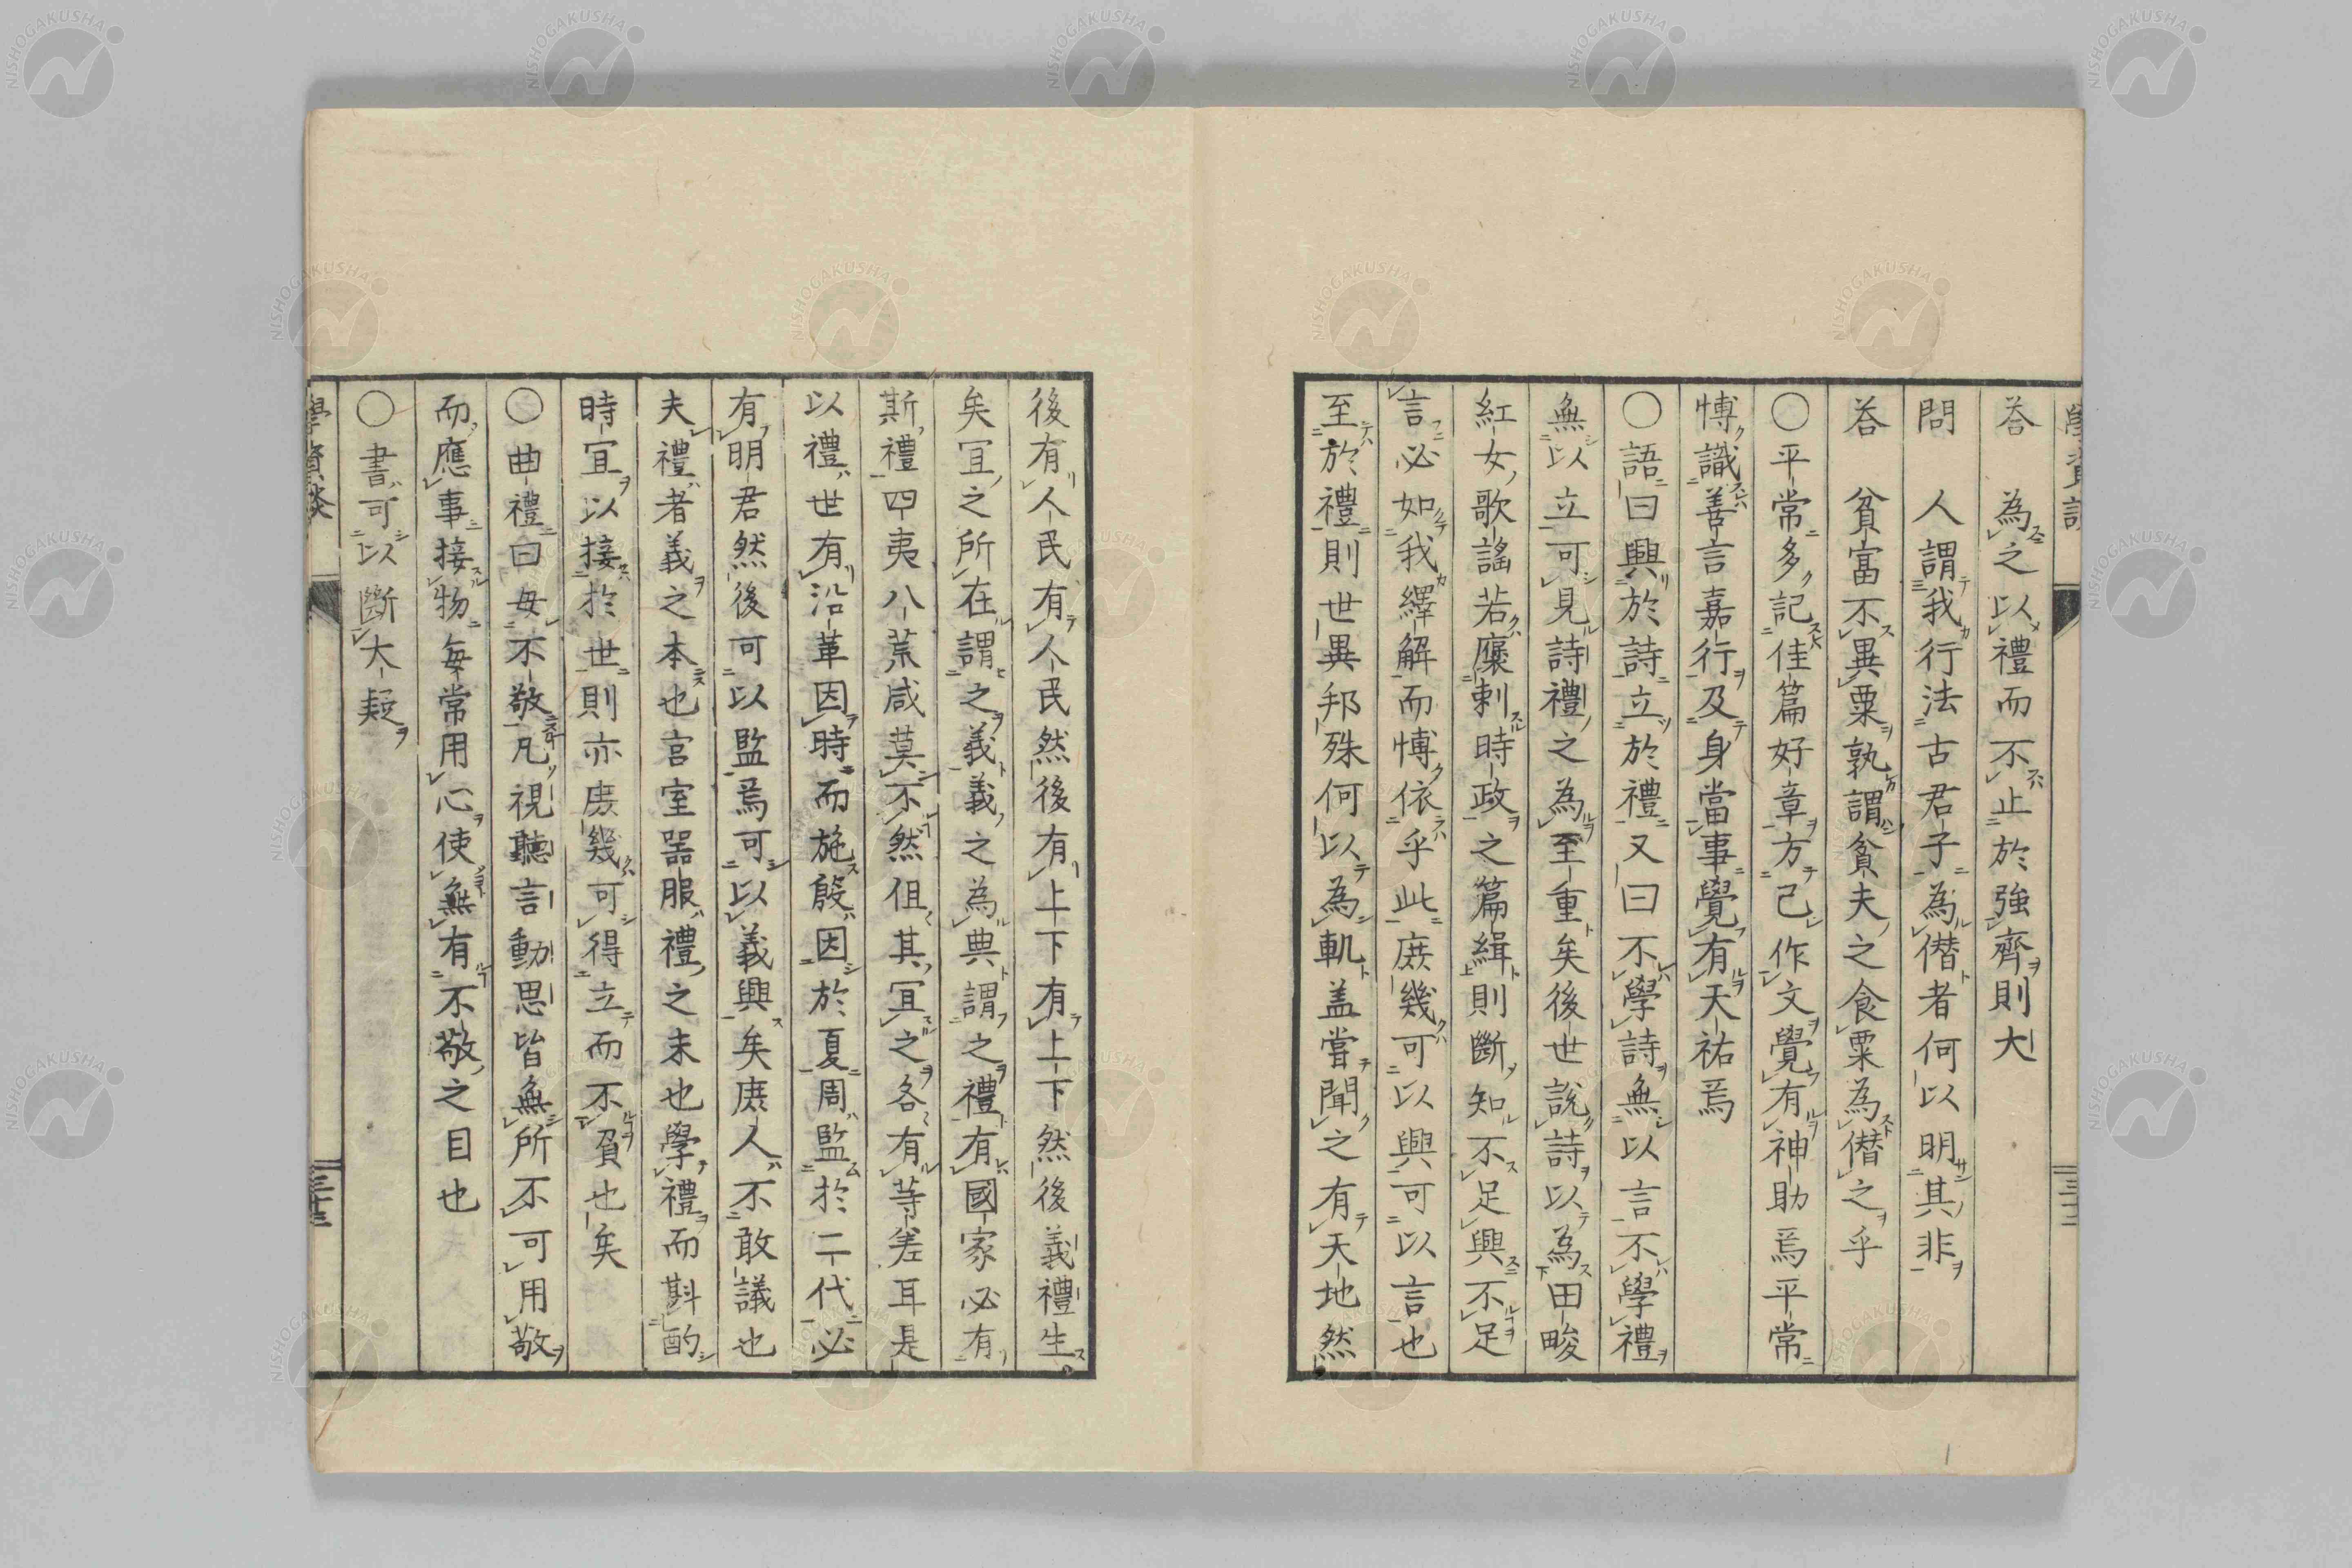 答　為之以禮而不止於強齊則大
問　人謂我行法古君子為僣者何以明其非
答　貧富不異粟孰謂貧夫之食粟為僣之乎
〇平常多記佳篇好章方己作文覺有神助焉平常
博識善言嘉行及身當事覺有天祐焉
〇語曰興於詩立於禮又曰不學詩無以言不學禮
無以立可見詩禮之為至重矣後世說詩以為田畯
紅女歌謠若麼刺時政之篇緝則斷知不足興不足
言必如我繹解而博依乎此庶幾可以興可以言也
至於禮則世異邦殊何以為軌盖嘗聞之有天地然
後有人民有人民然後有上下有上下然後義禮生
矣冝之所在謂之義義之為典謂之禮有國家必有
斯禮四夷八荒咸莫不然伹其冝之各有等差耳是
以禮世有沿革因時而施殷因於夏周監於二代必
有明君然後可以監焉可以義興矣庶人不敢議也
夫禮者義之本也宮室器服禮之末也學禮而斟酌
時冝以接於世則亦庶幾可得立而不貧也矣
〇曲禮曰毋不敬凡視聽言動思皆無所不可用敬
而應事接物每常用心使無有不敬之目也
〇書可以斷大疑
學資談
三十三